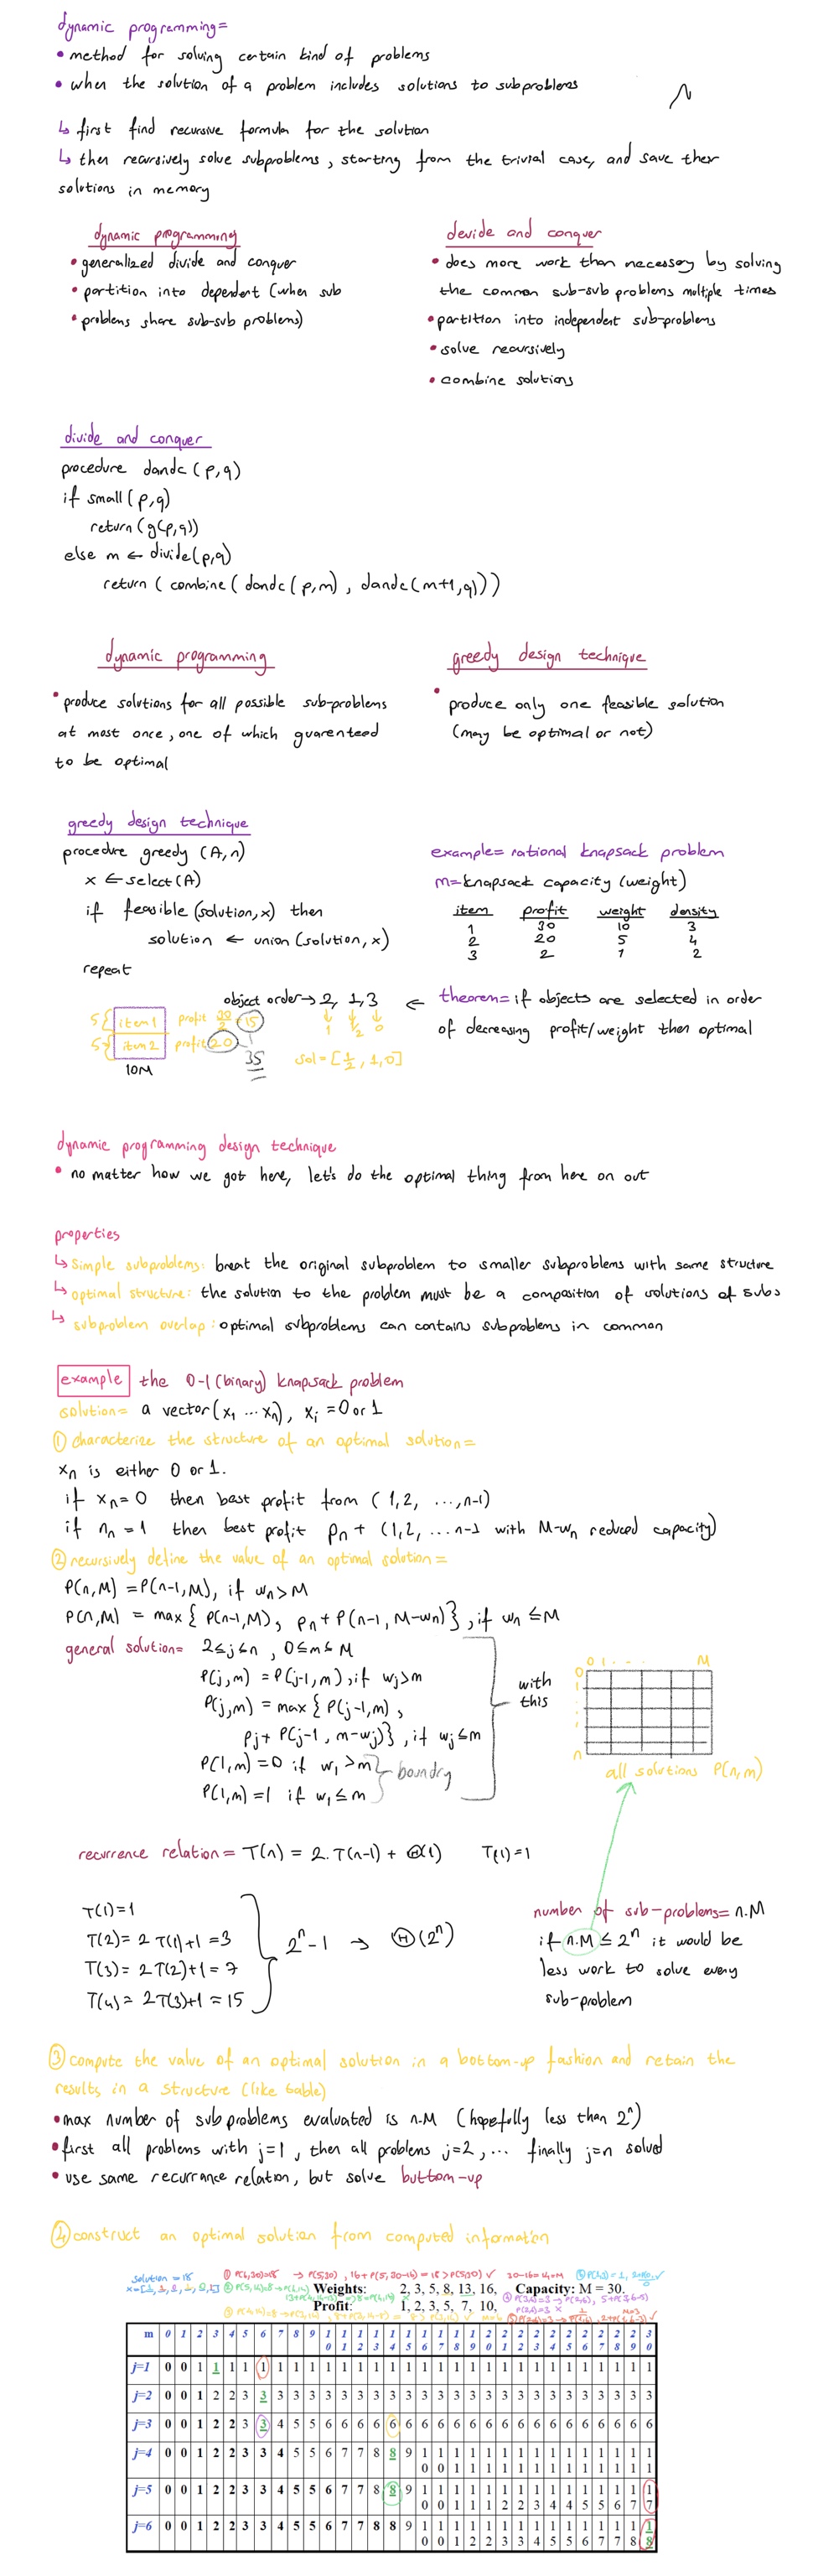 dynamic programming=
• method for solving certain kind of problems
• when the solution of a problem includes solutions to subproblems
↳ first find recursive formula for the solution
↳ then recursively solve subproblems, starting from the trivial case, and save their
solutions in memory
dynamic programming
• generalized divide and conquer
• partition into dependent (when sub
• problems share sub-sub problems)
devide and conquer
• does more work than necessary by solving
the common sub-sub problems multiple times
• partition into independent sub-problems
• solve recursively
• combine solutions
divide and conquer
procedure dandc (p,q)
if small (p,q)
return (g(p,q))
else m ← divide(p,q)
return ( combine ( dandc (p,m) , dandc (m+1,q)))
dynamic programming
• produce solutions for all possible sub-problems
at most once, one of which guarenteed
to be optimal
greedy design technique
• produce only one feasible solution
(may be optimal or not)
greedy design technique
procedure greedy (A,n)
x ← select(A)
if feasible (solution,x) then
solution ← union (solution,x)
repeat
example= rational knapsack problem
m=knapsack capacity (weight)
item profit weight density
1 30 10 3
2 20 5 4
3 2 1 2
object order → 2, 1, 3 ← theorem= if objects are selected in order
of decreasing profit/weight then optimal
5 item1 profit 30/2 = 15
5 item2 profit 20
10M
35
1 1/2 0
sol = [1/2, 1, 0]
dynamic programming design technique
• no matter how we got here, let's do the optimal thing from here on out
properties
↳ simple subproblems: break the original subproblem to smaller subproblems with same structure
↳ optimal structure: the solution to the problem must be a composition of solutions of subs
↳ subproblem overlap: optimal subproblems can contains subproblems in common
example the 0-1 (binary) knapsack problem
solution= a vector (x₁ ... xₙ), xᵢ = 0 or 1
① characterize the structure of an optimal solution=
xₙ is either 0 or 1.
if xₙ=0 then best profit from (1,2, ...,n-1)
if nₙ=1 then best profit pₙ + (1,2, ... n-1 with M-wₙ reduced capacity)
② recursively define the value of an optimal solution=
P(n,M) = P(n-1,M), if wₙ>M
P(n,M) = max{ P(n-1,M), pₙ + P(n-1, M-wₙ)}, if wₙ ≤ M
general solution= 2≤j≤n, 0≤m≤M
P(j,m) = P(j-1,m), if wj>m
P(j,m) = max{ P(j-1,m),
Pj + P(j-1, m-wj)}, if wj≤m
P(1,m)=0 if w₁>m
P(1,m)=1 if w₁≤m
boundry
with
this
0 1 . . . M
0
1
n
all solutions P(n,m)
recurrence relation= T(n) = 2.T(n-1) + Θ(1) T(1)=1
T(1)=1
T(2)= 2 T(1)+1 =3
T(3)= 2T(2)+1 = 7
T(4)= 2T(3)+1 = 15
2ⁿ-1 → Θ(2ⁿ)
number of sub-problems= n.M
if n.M ≤ 2ⁿ it would be
less work to solve every
sub-problem
③ compute the value of an optimal solution in a bottom-up fashion and retain the
results in a structure (like table)
• max number of subproblems evaluated is n.M (hopefully less than 2ⁿ)
• first all problems with j=1, then all problems j=2, ... finally j=n solved
• use same recurrance relation, but solve bottom-up
④ construct an optimal solution from computed information
solution = 18
① P(6,30)=18 → P(5,30), 16+P(5,30-16) = 18 > P(5,30) ✓ 30-16=14=M
Weights: 2, 3, 5, 8, 13, 16, Capacity: M = 30.
Profit: 1, 2, 3, 5, 7, 10,
m 0 1 2 3 4 5 6 7 8 9 10 11 12 13 14 15 16 17 18 19 20 21 22 23 24 25 26 27 28 29 30
j=1 0 0 1 1 1 1 1 1 1 1 1 1 1 1 1 1 1 1 1 1 1 1 1 1 1 1 1 1 1 1 1
j=2 0 0 1 2 2 3 3 3 3 3 3 3 3 3 3 3 3 3 3 3 3 3 3 3 3 3 3 3 3 3 3
j=3 0 0 1 2 2 3 3 4 5 5 6 6 6 6 6 6 6 6 6 6 6 6 6 6 6 6 6 6 6 6 6
j=4 0 0 1 2 2 3 3 4 5 5 6 7 7 8 8 9 10 10 11 11 11 11 11 11 11 11 11 11 11 11 11
j=5 0 0 1 2 2 3 3 4 5 5 6 7 7 8 8 9 10 10 11 11 12 12 13 14 14 15 15 16 17 17
j=6 0 0 1 2 2 3 3 4 5 5 6 7 7 8 8 9 10 10 11 12 12 13 13 14 15 15 16 17 17 18 18